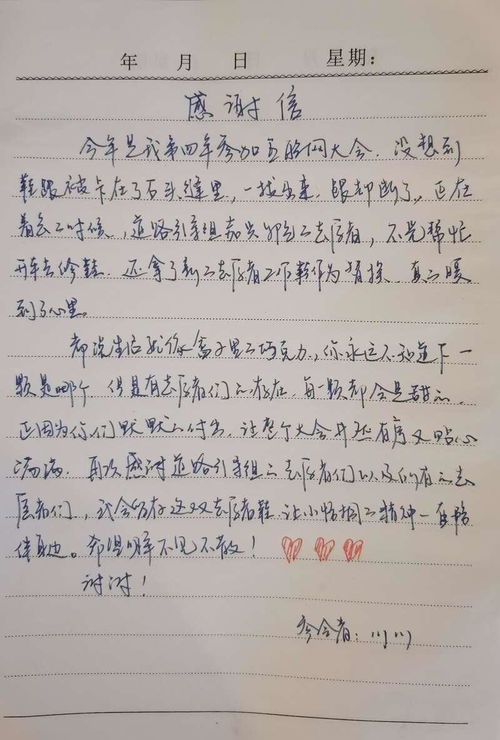 年 月 日 星期:
感谢信
今年是我第四年参加互联网大会. 没想到
鞋跟被卡在了石头缝里,一拔出来,跟却断了。正在
着急的时候,道路引导组嘉兴的志愿者,不光帮忙
开车去修鞋. 还拿了新的志愿者工作鞋作为替换. 真的暖
到了心里。
都说生活就像盒子里的巧克力,你永远不知道下一
颗是哪个. 但是有志愿者们的存在,每一颗都会是甜的.
正因为你们默默的付出,让整个大会井然有序又贴心
满满. 再次感谢道路引导组的志愿者们以及所有的志
愿者们,我会留存这双志愿者鞋 让小梧桐的精神一直陪
伴 希望明年不见不散!
谢谢!
参会者:川川